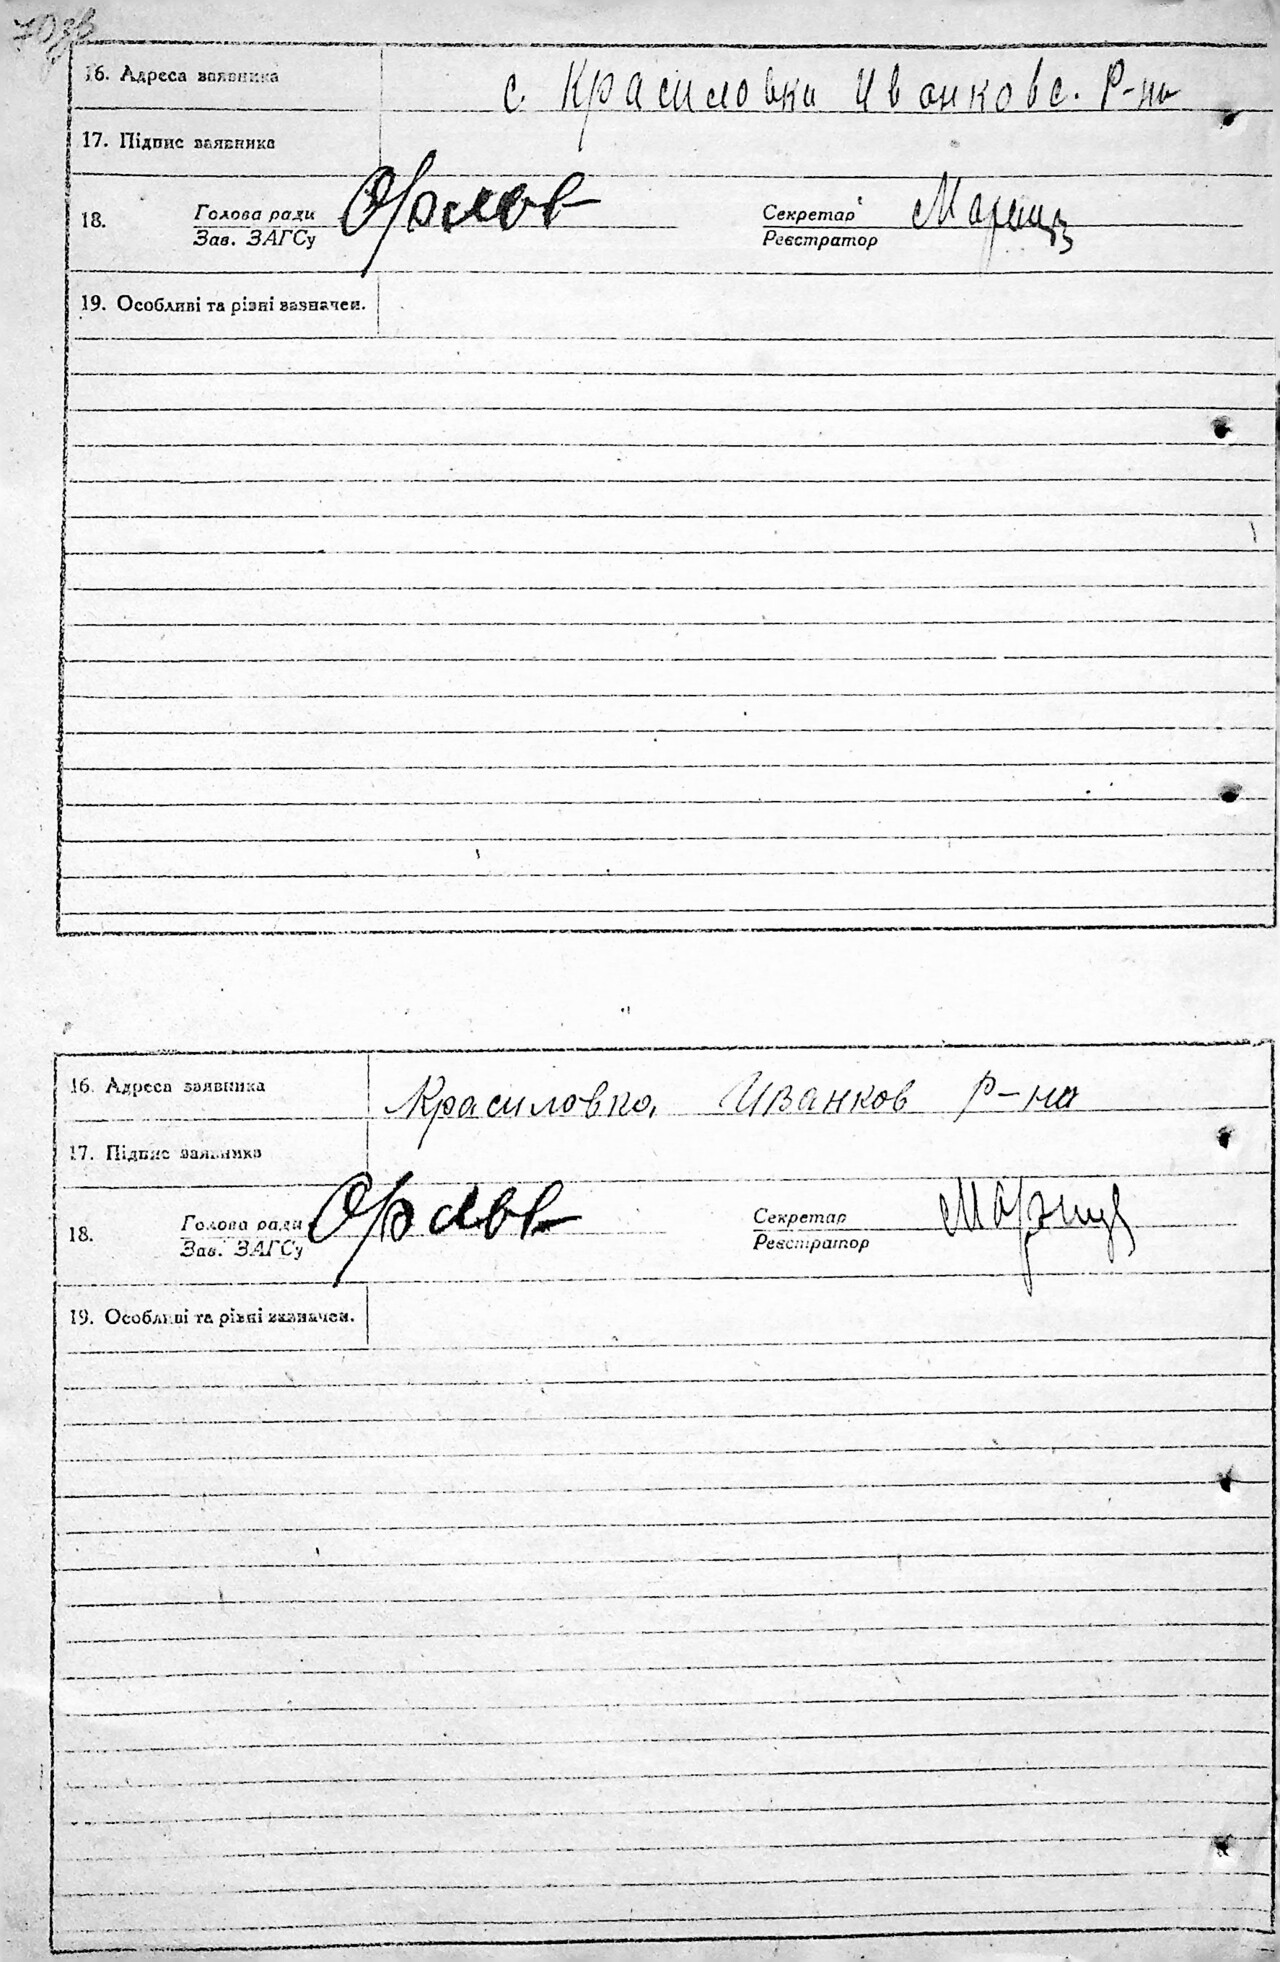 70зв
16. Адреса заявника с. Красиловки Иванковс. Р-на
17. Підпис заявника
18. Голова ради Орлов Секретар
Зав. ЗАГСу Реєстратор
19. Особливі та різні зазначен.
16. Адреса заявника Красиловка, Иванков Р-на
17. Підпис заявника
18. Голова ради Орлов Секретар
Зав. ЗАГСу Реєстратор
19. Особливі та різні зазначен.